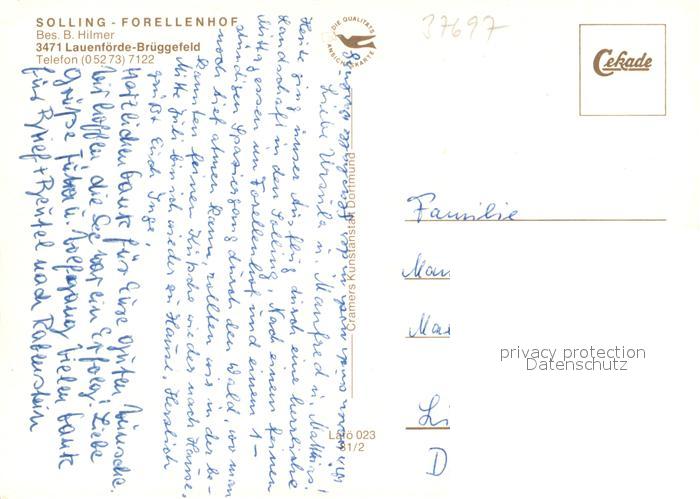 SOLLING - FORELLENHOF
Bes. B. Hilmer
3471 Lauenförde-Brüggefeld
Telefon (0 52 73) 7122
DIE QUALITÄTS
ANSICHTSKARTE
37697
Cekade
Cramers Kunstanstalt Dortmund
Lafö 023
81/2
Liebe Ursula u. Manfred u. Matthias!
Heute ging unser Ausflug durch eine herrliche
Landschaft in den Solling. Nach einem feinen
Mittagessen im Forellenhof und einem 1-
stündigen Spaziergang durch den Wald, wo man
noch tief atmen kann, rollten wir in der be-
kannten feinen Kutsche wieder nach Hause.
Mitte Juli bin ich wieder zu Hause. Herzlich
grüßt Euch Inge.
Herzlichen Dank für Eure guten Wünsche.
Wir hoffen die war ein Erfolg! Liebe
Grüße Wolfgang Vielen Dank
für Brief + nach
Familie
Man
Mar
Li
D
privacy protection
Datenschutz